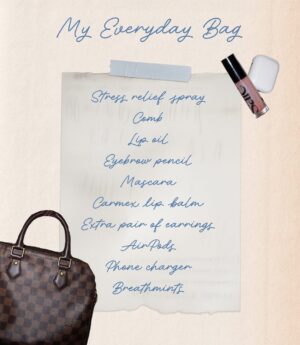 My Everyday Bag
Stress relief spray
Comb
Lip oil
Eyebrow pencil
Mascara
Carmex lip balm
Extra pair of earrings
AirPods
Phone charger
Breathmints